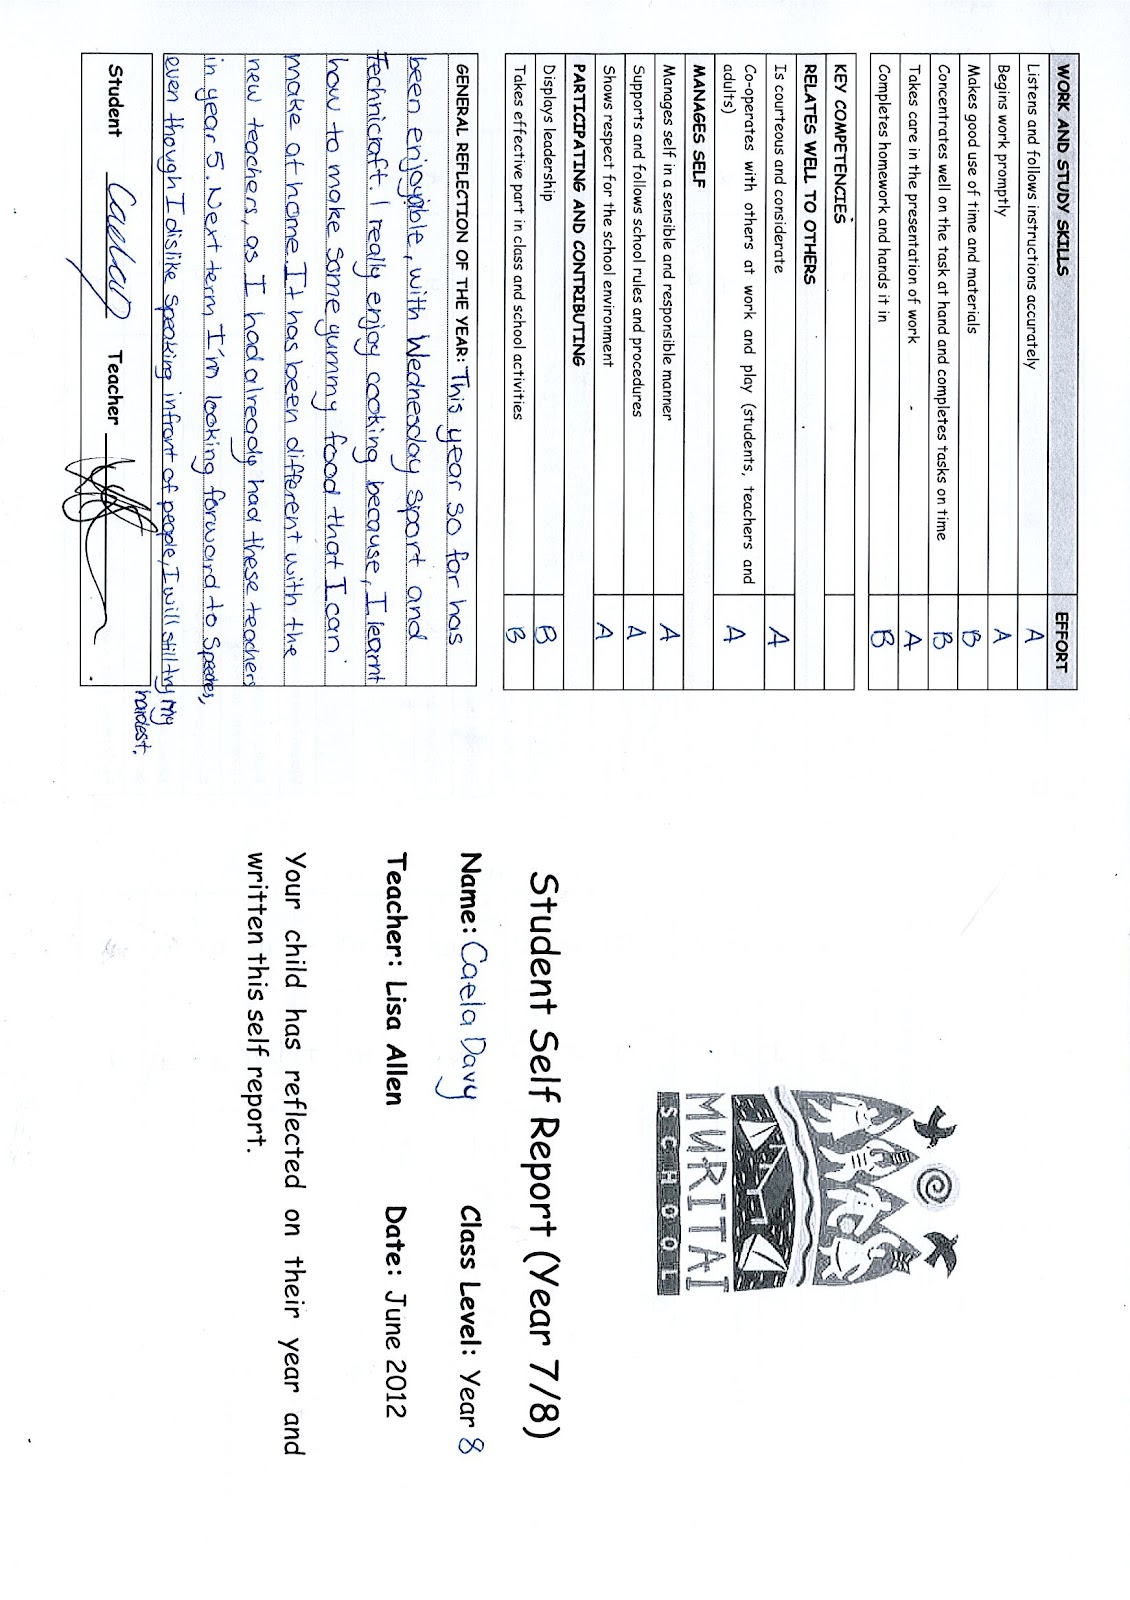 WORK AND STUDY SKILLS EFFORT
Listens and follows instructions accurately A
Begins work promptly A
Makes good use of time and materials B
Concentrates well on the task at hand and completes tasks on time B
Takes care in the presentation of work A
Completes homework and hands it in B
KEY COMPETENCIES
RELATES WELL TO OTHERS
Is courteous and considerate A
Co-operates with others at work and play (students, teachers and
adults) A
MANAGES SELF
Manages self in a sensible and responsible manner A
Supports and follows school rules and procedures A
Shows respect for the school environment A
PARTICIPATING AND CONTRIBUTING
Displays leadership B
Takes effective part in class and school activities B
GENERAL REFLECTION OF THE YEAR: This year so far has
been enjoyible, with Wednesday sport and
Technicraft. I really enjoy cooking because, I learnt
how to make some yummy food that I can
make at home. It has been different with the
new teachers, as I had already had these teachers
in year 5. Next term I'm looking forward to Speeches,
even though I dislike speaking infront of people, I will still try my
hardest.
Student Caela D Teacher
MURITAI
SCHOOL
Student Self Report (Year 7/8)
Name: Caela Davy Class Level: Year 8
Teacher: Lisa Allen Date: June 2012
Your child has reflected on their year and
written this self report.